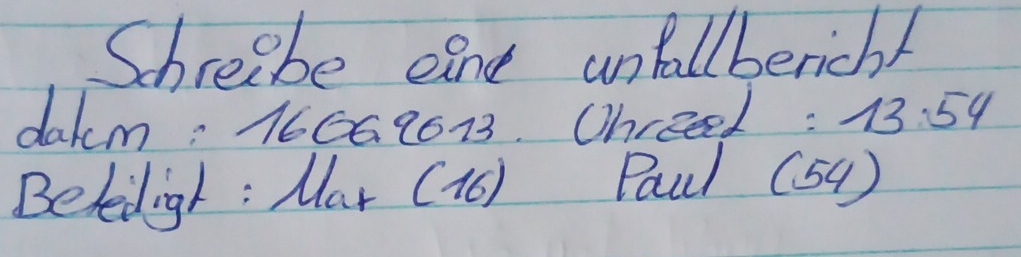 Schreibe eine unfallbericht
datem : 16 06 2013. Uhrzeit : 13:54
Beteiligt : Max (16) Paul (54)